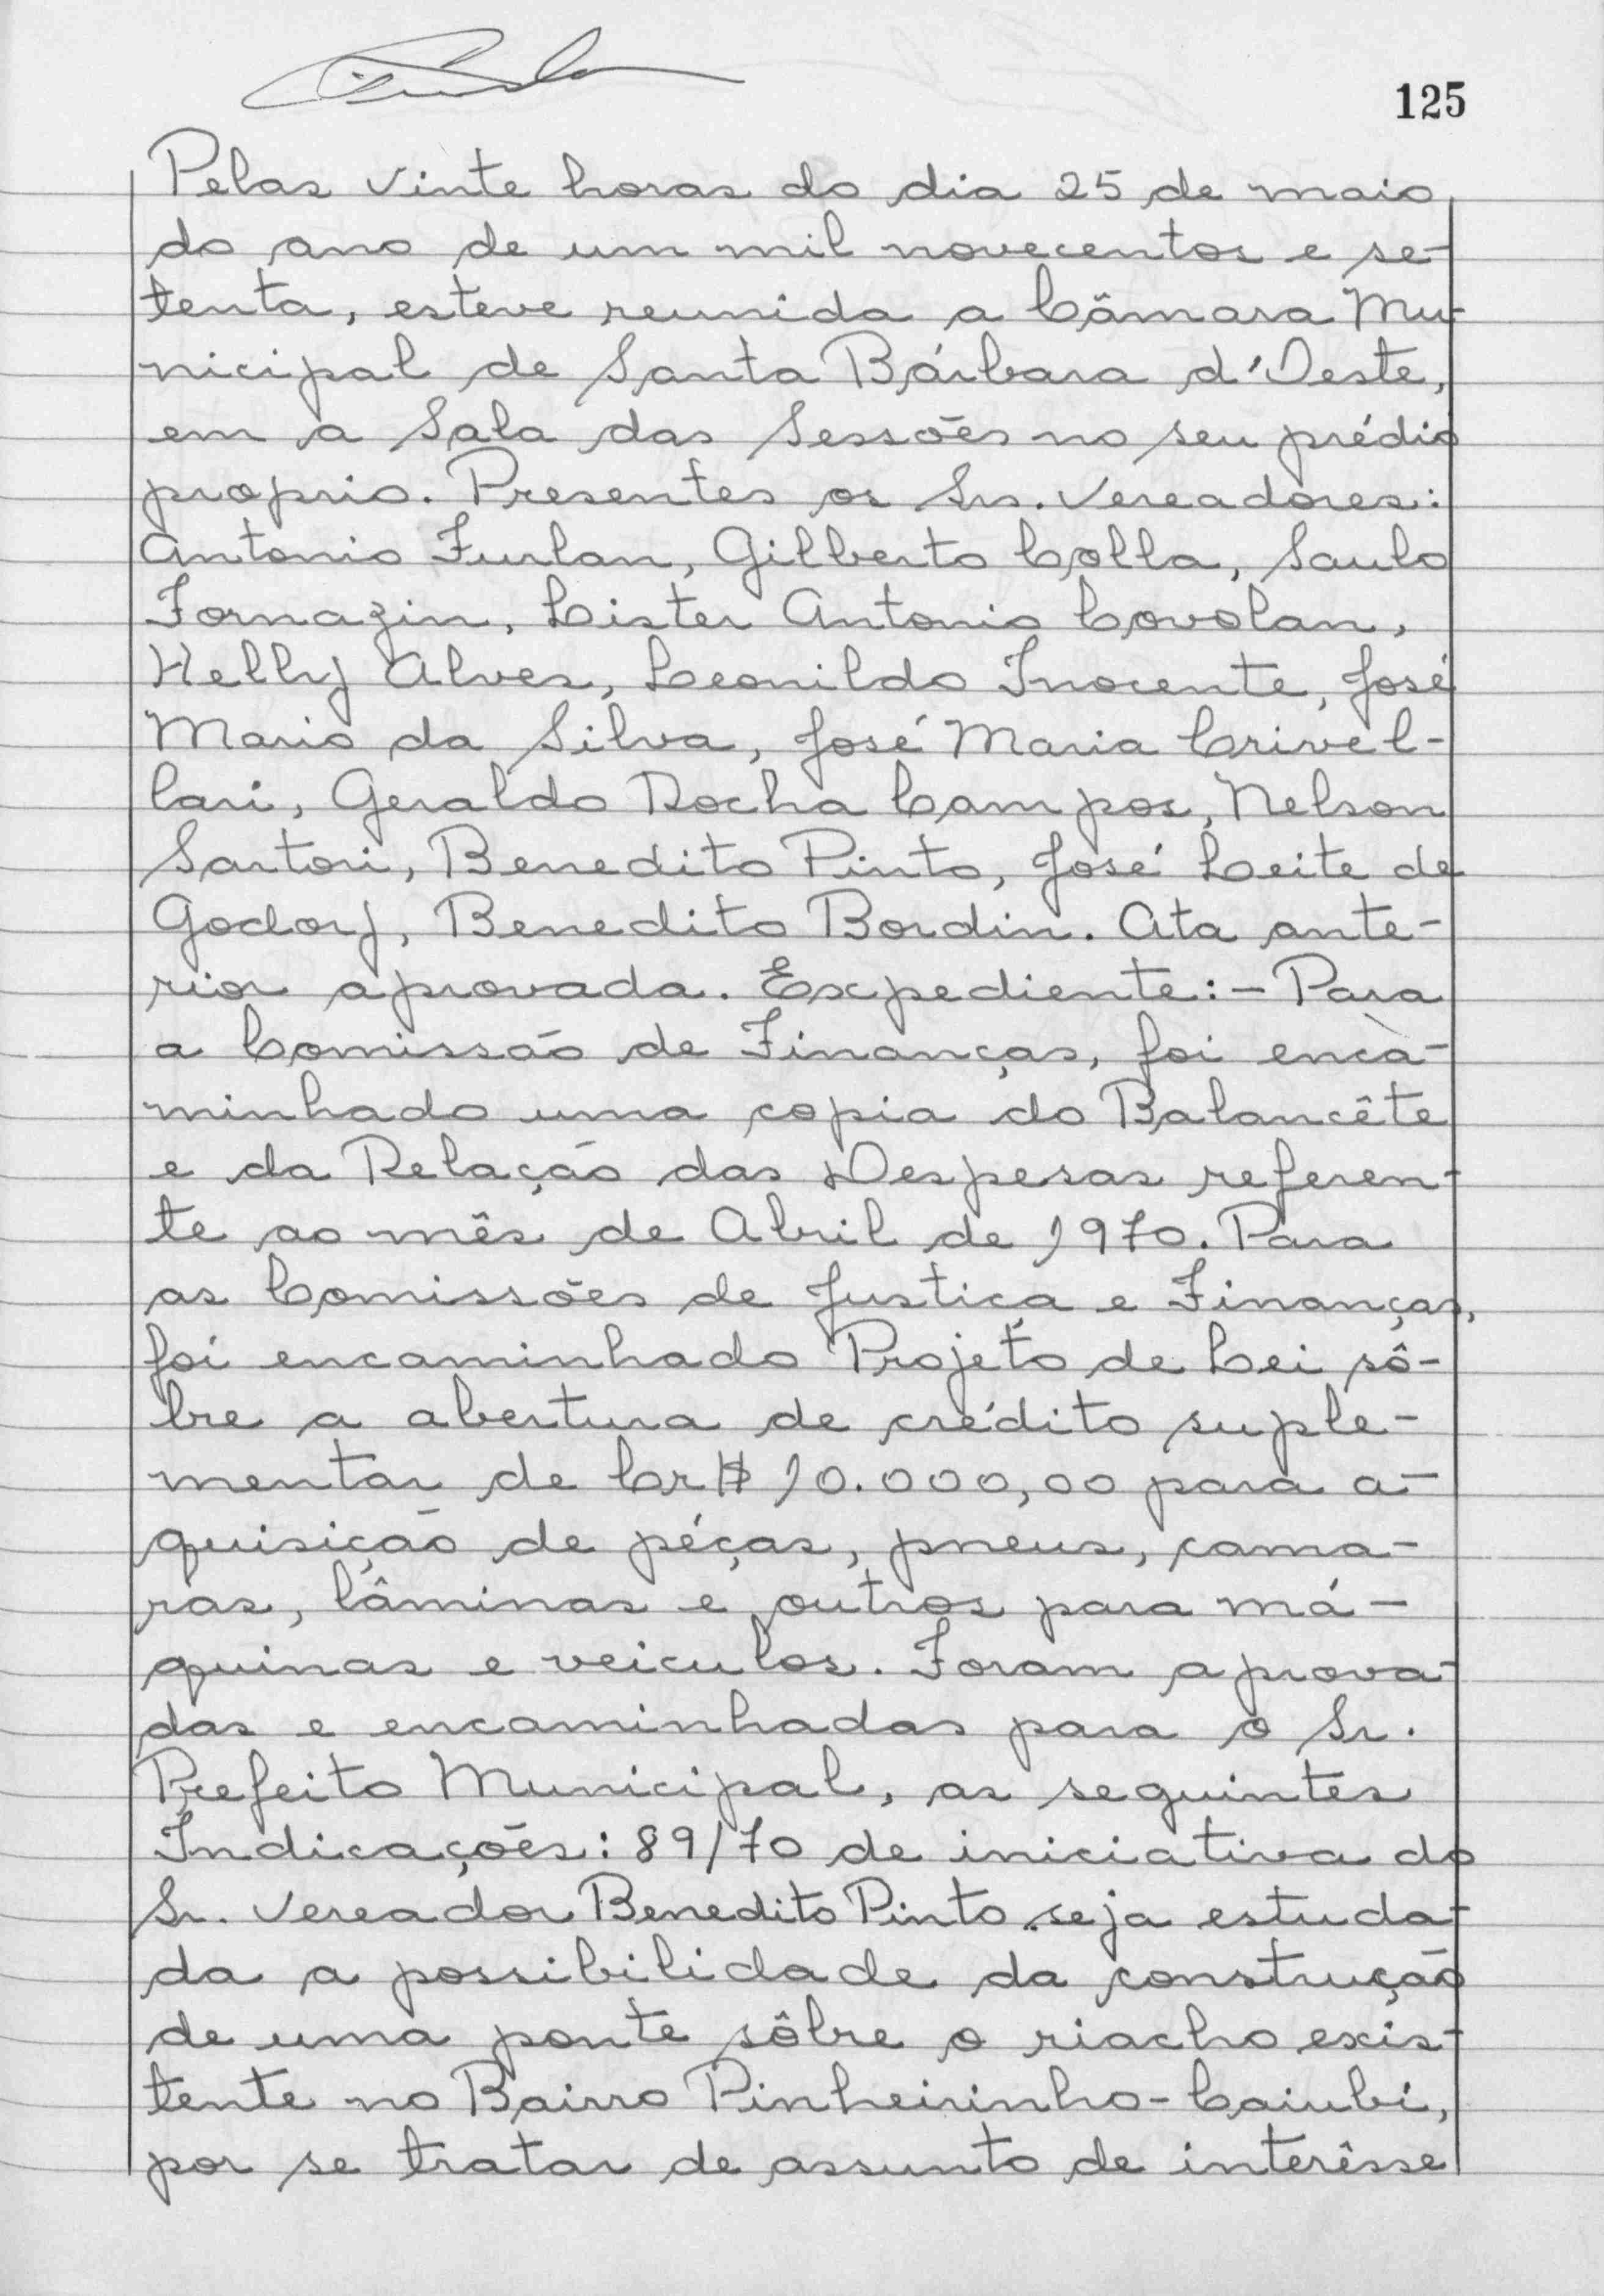 125
Pelas vinte horas do dia 25 de maio
do ano de um mil novecentos e se-
tenta, esteve reunida a Câmara Mu-
nicipal de Santa Bárbara d'Oeste,
em a Sala das Sessões no seu prédio
proprio. Presentes os Srs. Vereadores:
Antonio Furlan, Gilberto Colla, Saulo
Fornazin, Lister Antonio Covolan,
Kelly Alves, Leonildo Inocente, José
Mario da Silva, José Maria Crivel-
lari, Geraldo Rocha Campos, Nelson
Sartori, Benedito Pinto, José Leite de
Godoy, Benedito Bordin. Ata ante-
rior aprovada. Expediente:- Para
a Comissão de Finanças, foi enca-
minhado uma copia do Balancête
e da Relação das Despesas referen-
te ao mês de Abril de 1970. Para
as Comissões de Justiça e Finanças,
foi encaminhado Projeto de Lei sô-
bre a abertura de crédito suple-
mentar de Cr$ 10.000,00 para a-
quisição de péças, pneus, cama-
ras, lâminas e outros para má-
quinas e veiculos. Foram aprova-
das e encaminhadas para o Sr.
Prefeito Municipal, as seguintes
Indicações: 89/70 de iniciativa do
Sr. Vereador Benedito Pinto seja estuda-
da a possibilidade da construção
de uma ponte sôbre o riacho exis-
tente no Bairro Pinheirinho-Caiubi,
por se tratar de assunto de interêsse